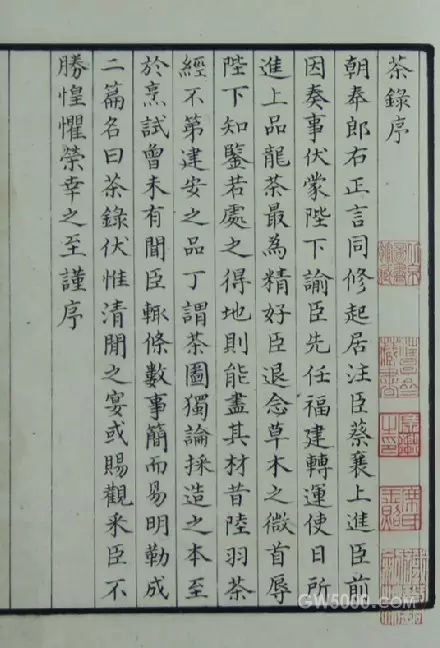 茶錄序
朝奉郎右正言同修起居注臣蔡襄上進臣前
因奏事伏蒙陛下諭臣先任福建轉運使日所
進上品龍茶最為精好臣退念草木之微首辱
陛下知鑒若處之得地則能盡其材昔陸羽茶
經不第建安之品丁謂茶圖獨論採造之本至
於烹試曾未有聞臣輒條數事簡而易明勒成
二篇名曰茶錄伏惟清閒之宴或賜觀采臣不
勝惶懼榮幸之至謹序
GW5000.COM